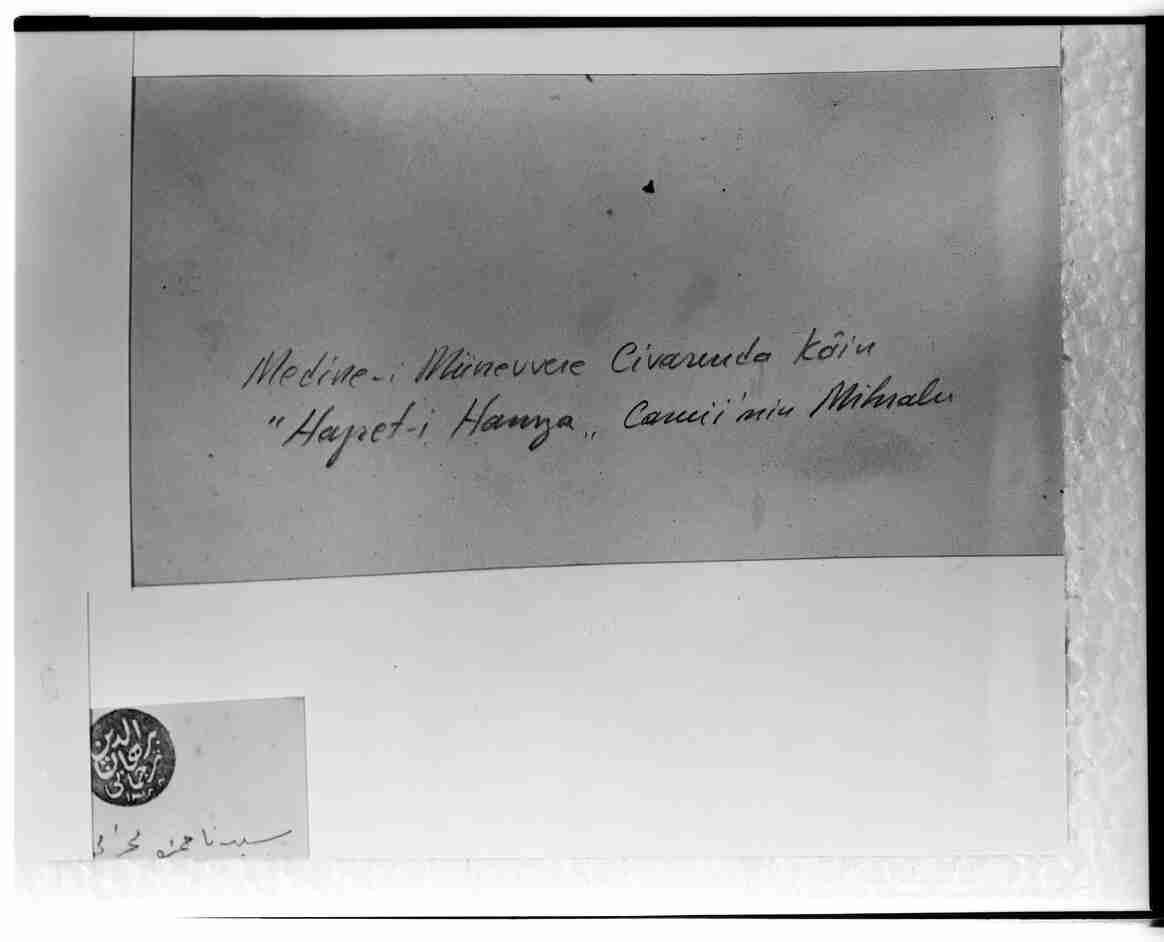 Medine-i Münevvere Civarında kâin
"Hazret-i Hamza„ Camii'nin Mihrabı
برهان الدين
ترجمانى
سيدنا حمزه محرابى